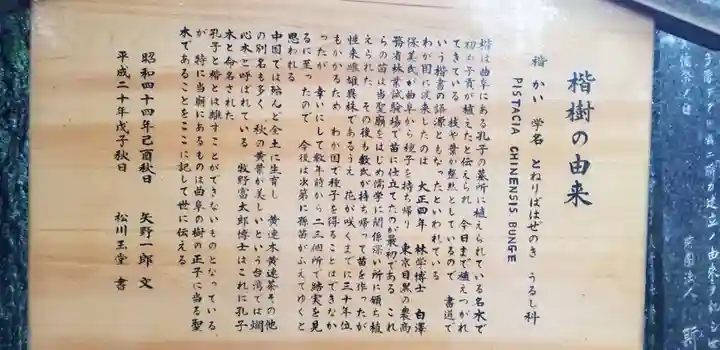 楷樹の由来
楷 かい 学名 とねりばはぜのき うるし科
PISTACIA CHINENSIS BUNGE
楷は曲阜にある孔子の墓所に植えられている名木で
初め子貢が植えたと伝えられ 今日まで植えつがれ
てきている 枝や葉が整然としているので 書道で
いう楷書の語源ともなったといわれている
わが国に渡来したのは 大正四年 林学博士 白澤
保美氏が曲阜から種子を持ち帰り 東京目黒の農商
務省林業試験場で苗に仕立てたのが最初である これ
らの苗は当聖廟をはじめ儒学に関係深い所に頒ち植
えられた その後も数氏が持ち帰って苗を作ったが
性来雌雄異株であるうえ 花が咲くまでに三十年位
もかかるため わが国で種子を得ることはできなか
ったが 幸いにして数年前から二三個所で結実を見
るに至ったので 今後は次第に孫苗がふえてゆくと
思われる
中国では殆んど全土に生育し 黄連木黄連茶その他
の別名も多く 秋の黄葉が美しいという台湾では爛
心木と呼ばれている 牧野富太郎博士はこれに孔子
木と命名された
孔子と楷とは離すことができないものとなっている
が 特に当廟にあるものは曲阜の樹の正子に当る聖
木であることをここに記して世に伝える
昭和四十四年己酉秋日 矢野一郎 文
平成二十年戊子秋日 松川玉堂 書